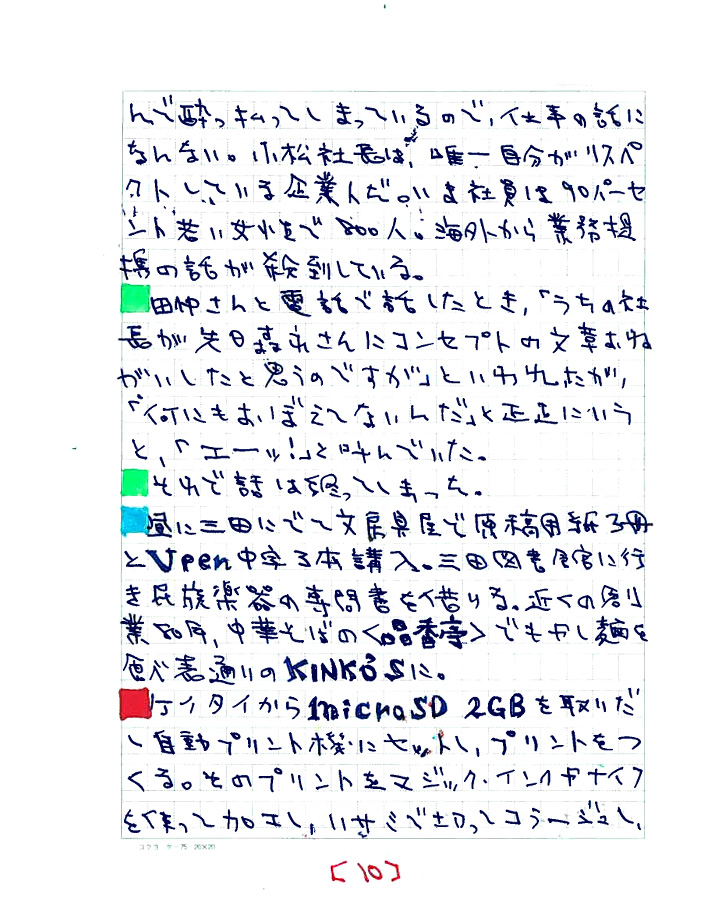 んで酔っ払ってしまっているので、仕事の話に
なんない。小松社長は、唯一自分がリスペ
クトしている企業人だ。いま社員は90パーセ
ント若い女性で800人。海外から業務提
携の話が殺到している。
田仲さんと電話で話したとき,「うちの社
長が先日森永さんにコンセプトの文章おね
がいしたと思うのですが」といわれたが,
「何にもおぼえてないんだ」と正直にいう
と,「エーッ!」と叫んでいた。
それで話は終ってしまった。
昼に三田にでて文房具屋で原稿用紙3冊
とVpen中字3本購入。三田図書館に行
き民族楽器の専門書を借りる。近くの創
業80年,中華そばの<晶香亭>でもやし麺を
食べ表通りのKINKO'Sに。
ケイタイからmicroSD 2GBを取りだ
し自動プリント機にセットし,プリントをつ
くる。そのプリントをマジック・インクやナイフ
を使って加工し,ハサミで切ってコラージュし,
コクヨ ケ-75 20×20
[10]